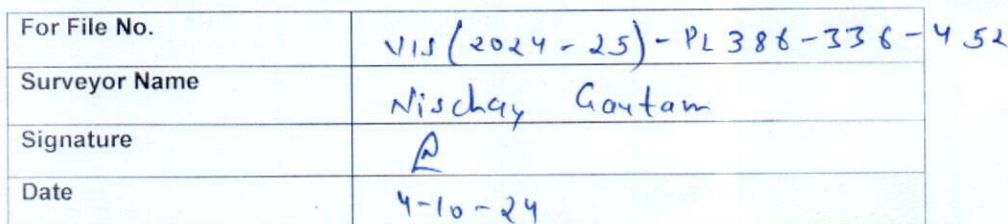 For File No. VIS(2024-25)-PL386-336-452
Surveyor Name Nischay Gautam
Signature
Date 4-10-24